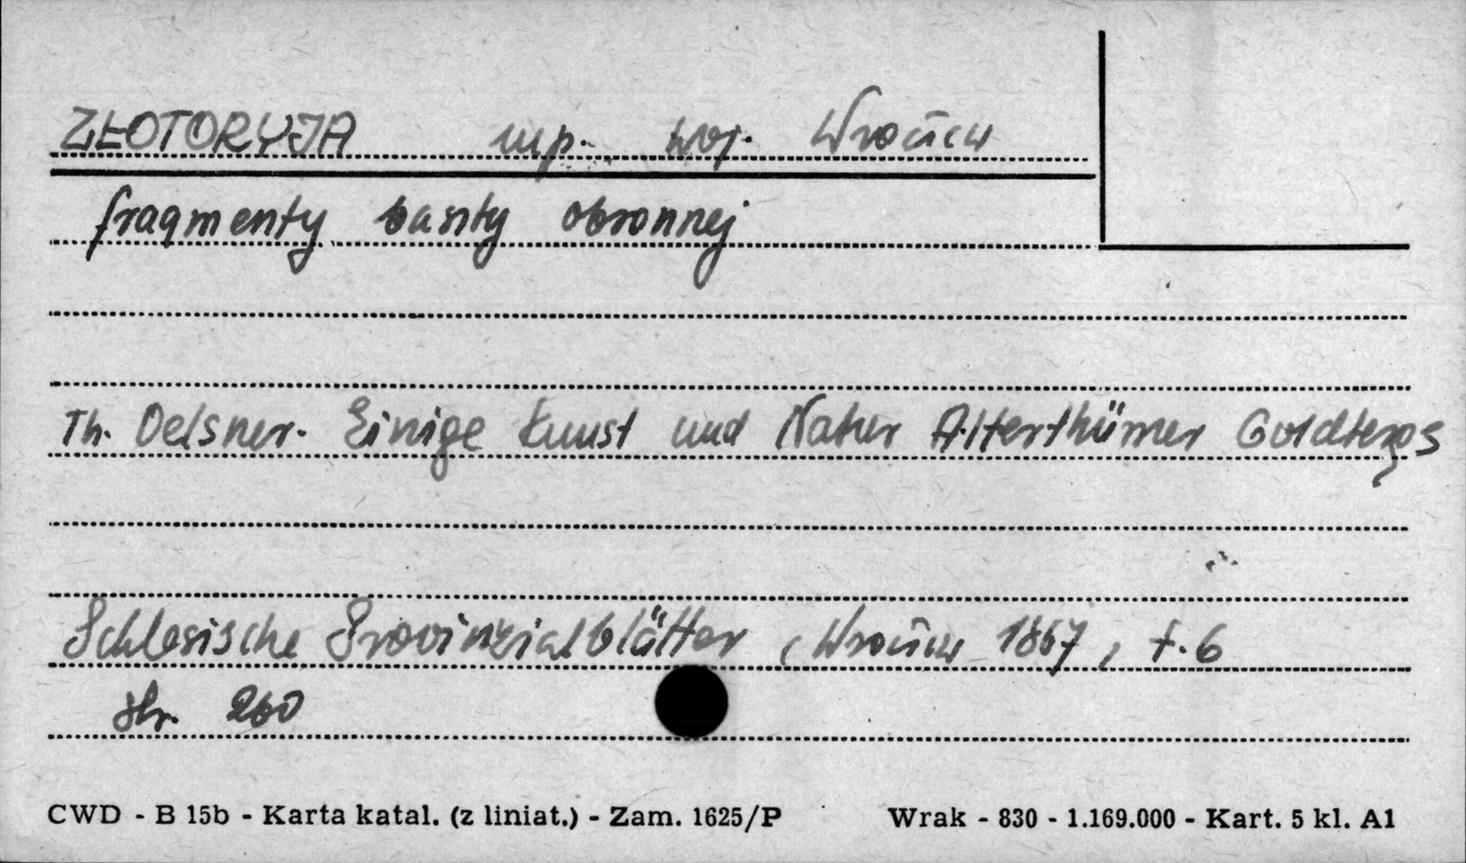 ZŁOTORYJA mp. woj. Wrocław
fragmenty baszty obronnej
Th. Oelsner. Einige Kunst und Natur Alterthümer Goldbergs
Schlesische Provinzialblätter, Wrocław 1867, t. 6
str. 260
CWD - B 15b - Karta katal. (z liniat.) - Zam. 1625/P Wrak - 830 - 1.169.000 - Kart. 5 kl. A1